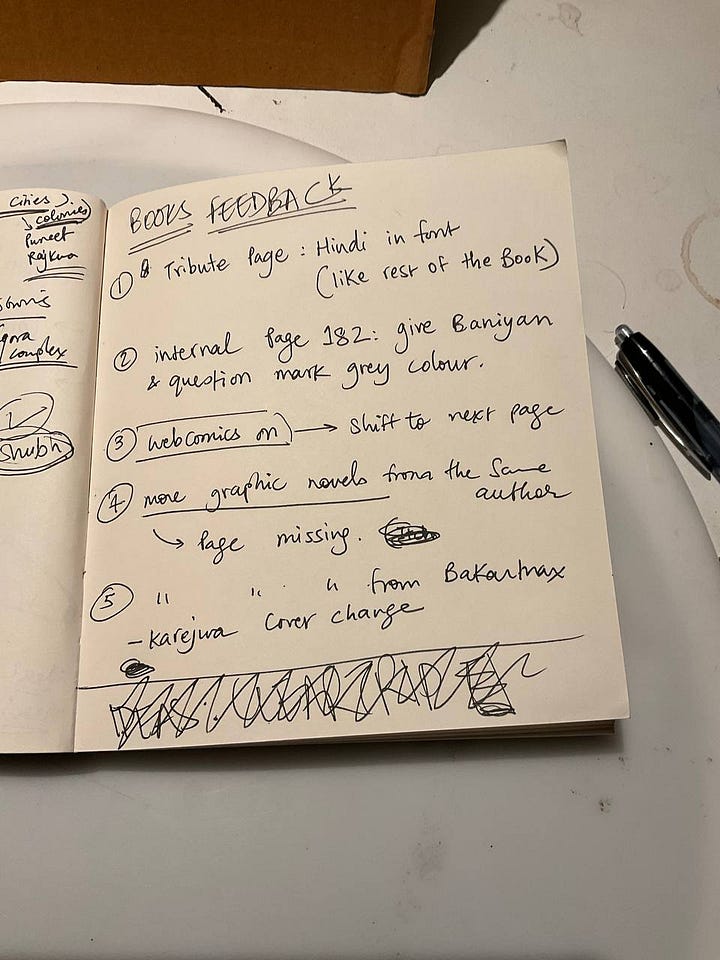 cities ).
colonies)
Puneet
Rajkwa
complex
Shubh
BOOKS FEEDBACK
① Tribute Page : Hindi in font
(like rest of the Book)
② internal Page 182: give Baniyan
& question mark grey colour.
③ webcomics on) → shift to next page
④ more graphic novels from the same
author
↳ Page missing.
⑤ " " " from Bakarmax
- Karejwa Cover change